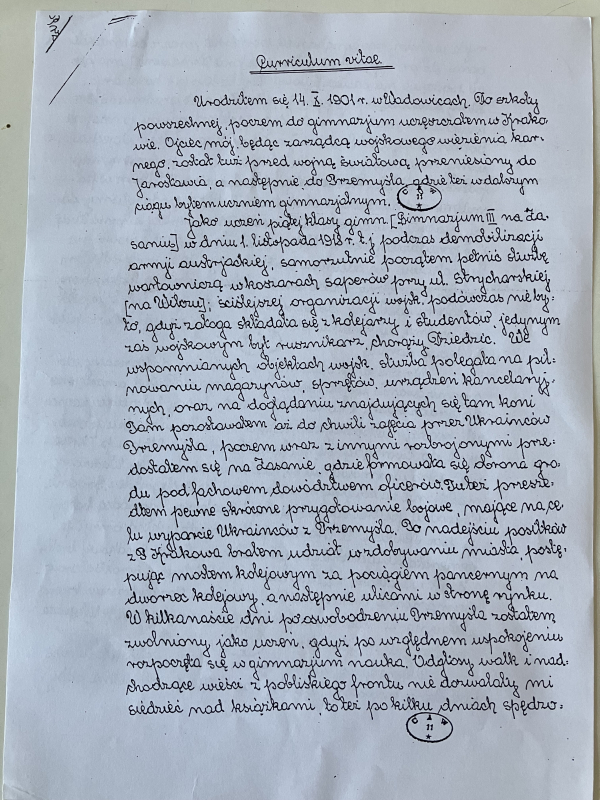 Curriculum vitae.
Urodziłem się 14. X. 1901 r. w Wadowicach. Do szkoły
powszechnej, poczem do gimnazjum uczęszczałem w Krako-
wie. Ojciec mój, będąc zarządcą wojskowego więzienia kar-
nego, został tuż przed wojną światową przeniesiony do
Jarosławia, a następnie do Przemyśla, gdzie też w dalszym
ciągu byłem uczniem gimnazjalnym.
C A W
11
Jako uczeń piątej klasy gimn [Gimnazjum III na Za-
saniu] w dniu 1. listopada 1918 r. t. j. podczas demobilizacji
armji austrjackiej, samorzutnie począłem pełnić służbę
wartowniczą w koszarach saperów przy ul. Strycharskiej
[na Wilczu]; ściślejszej organizacji wojsk. podówczas nie by-
ło, gdyż załoga składała się z kolejarzy i studentów, jedynym
zaś wojskowym był rusznikarz, chorąży Dziedzic. We
wspomnianych objektach wojsk. służba polegała na pil-
nowaniu magazynów, sprzętów, urządzeń kancelaryj-
nych, oraz na doglądaniu znajdujących się tam koni
Tam pozostawałem aż do chwili zajęcia przez Ukraińców
Przemyśla, poczem wraz z innymi rozbrojonymi prze-
dostałem się na Zasanie, gdzie formowała się obrona gro-
du pod fachowem dowództwem oficerów. Tu też przesze-
dłem pewne skrócone przygotowanie bojowe, mające na ce-
lu wyparcie Ukraińców z Przemyśla. Po nadejściu posiłków
z Krakowa brałem udział w zdobywaniu miasta, postę-
pując mostem kolejowym za pociągiem pancernym na
dworzec kolejowy, a następnie ulicami w stronę rynku.
W kilkanaście dni po oswobodzeniu Przemyśla zostałem
zwolniony jako uczeń, gdyż po względnem uspokojeniu
rozpoczęła się w gimnazjum nauka. Odgłosy walk i nad-
chodzące wieści z pobliskiego frontu nie dozwalały mi
siedzieć nad książkami, to też po kilku dniach spędzo-
C A W
11